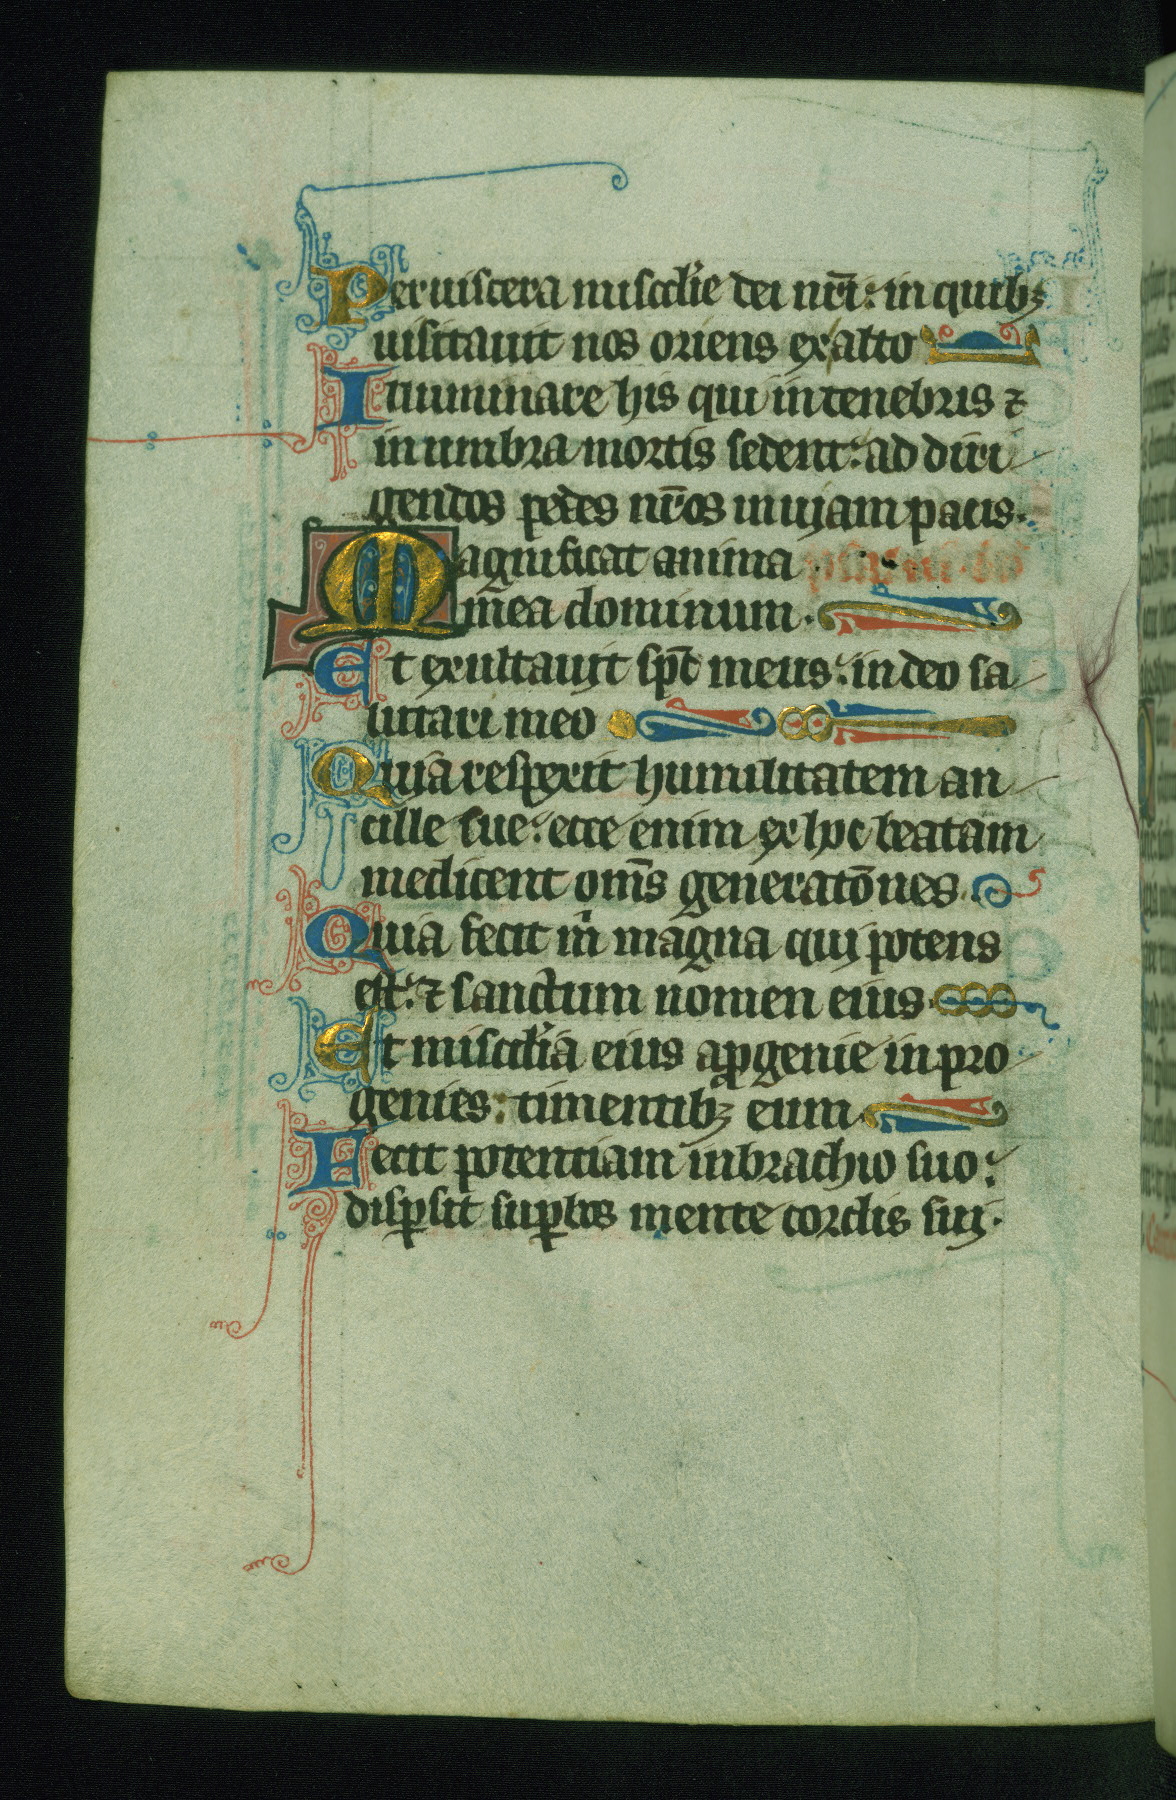 Per uiscera misc̄dīe dei nr̄i: in quibꝫ
uisitauit nos oriens ex alto
Illuminare his qui in tenebris ⁊
in umbra mortis sedent: ad diri
gendos pedes nr̄os in uiam pacis.
Magnificat anima
mea dominum.
Et exultauit sp̄c meus: in deo sa
lutari meo
Quia respexit humilitatem an
cille sue: ecce enim ex hoc beatam
me dicent om̄s generatōnes.
Quia fecit m̄ magna qui potens
est: ⁊ sanctum nomen eius.
Et misc̄dīa eius a ꝓgenie in pro
genies: timentibꝫ eum.
Fecit potentiam in brachio suo:
disꝑsit suꝑbos mente cordis sui.